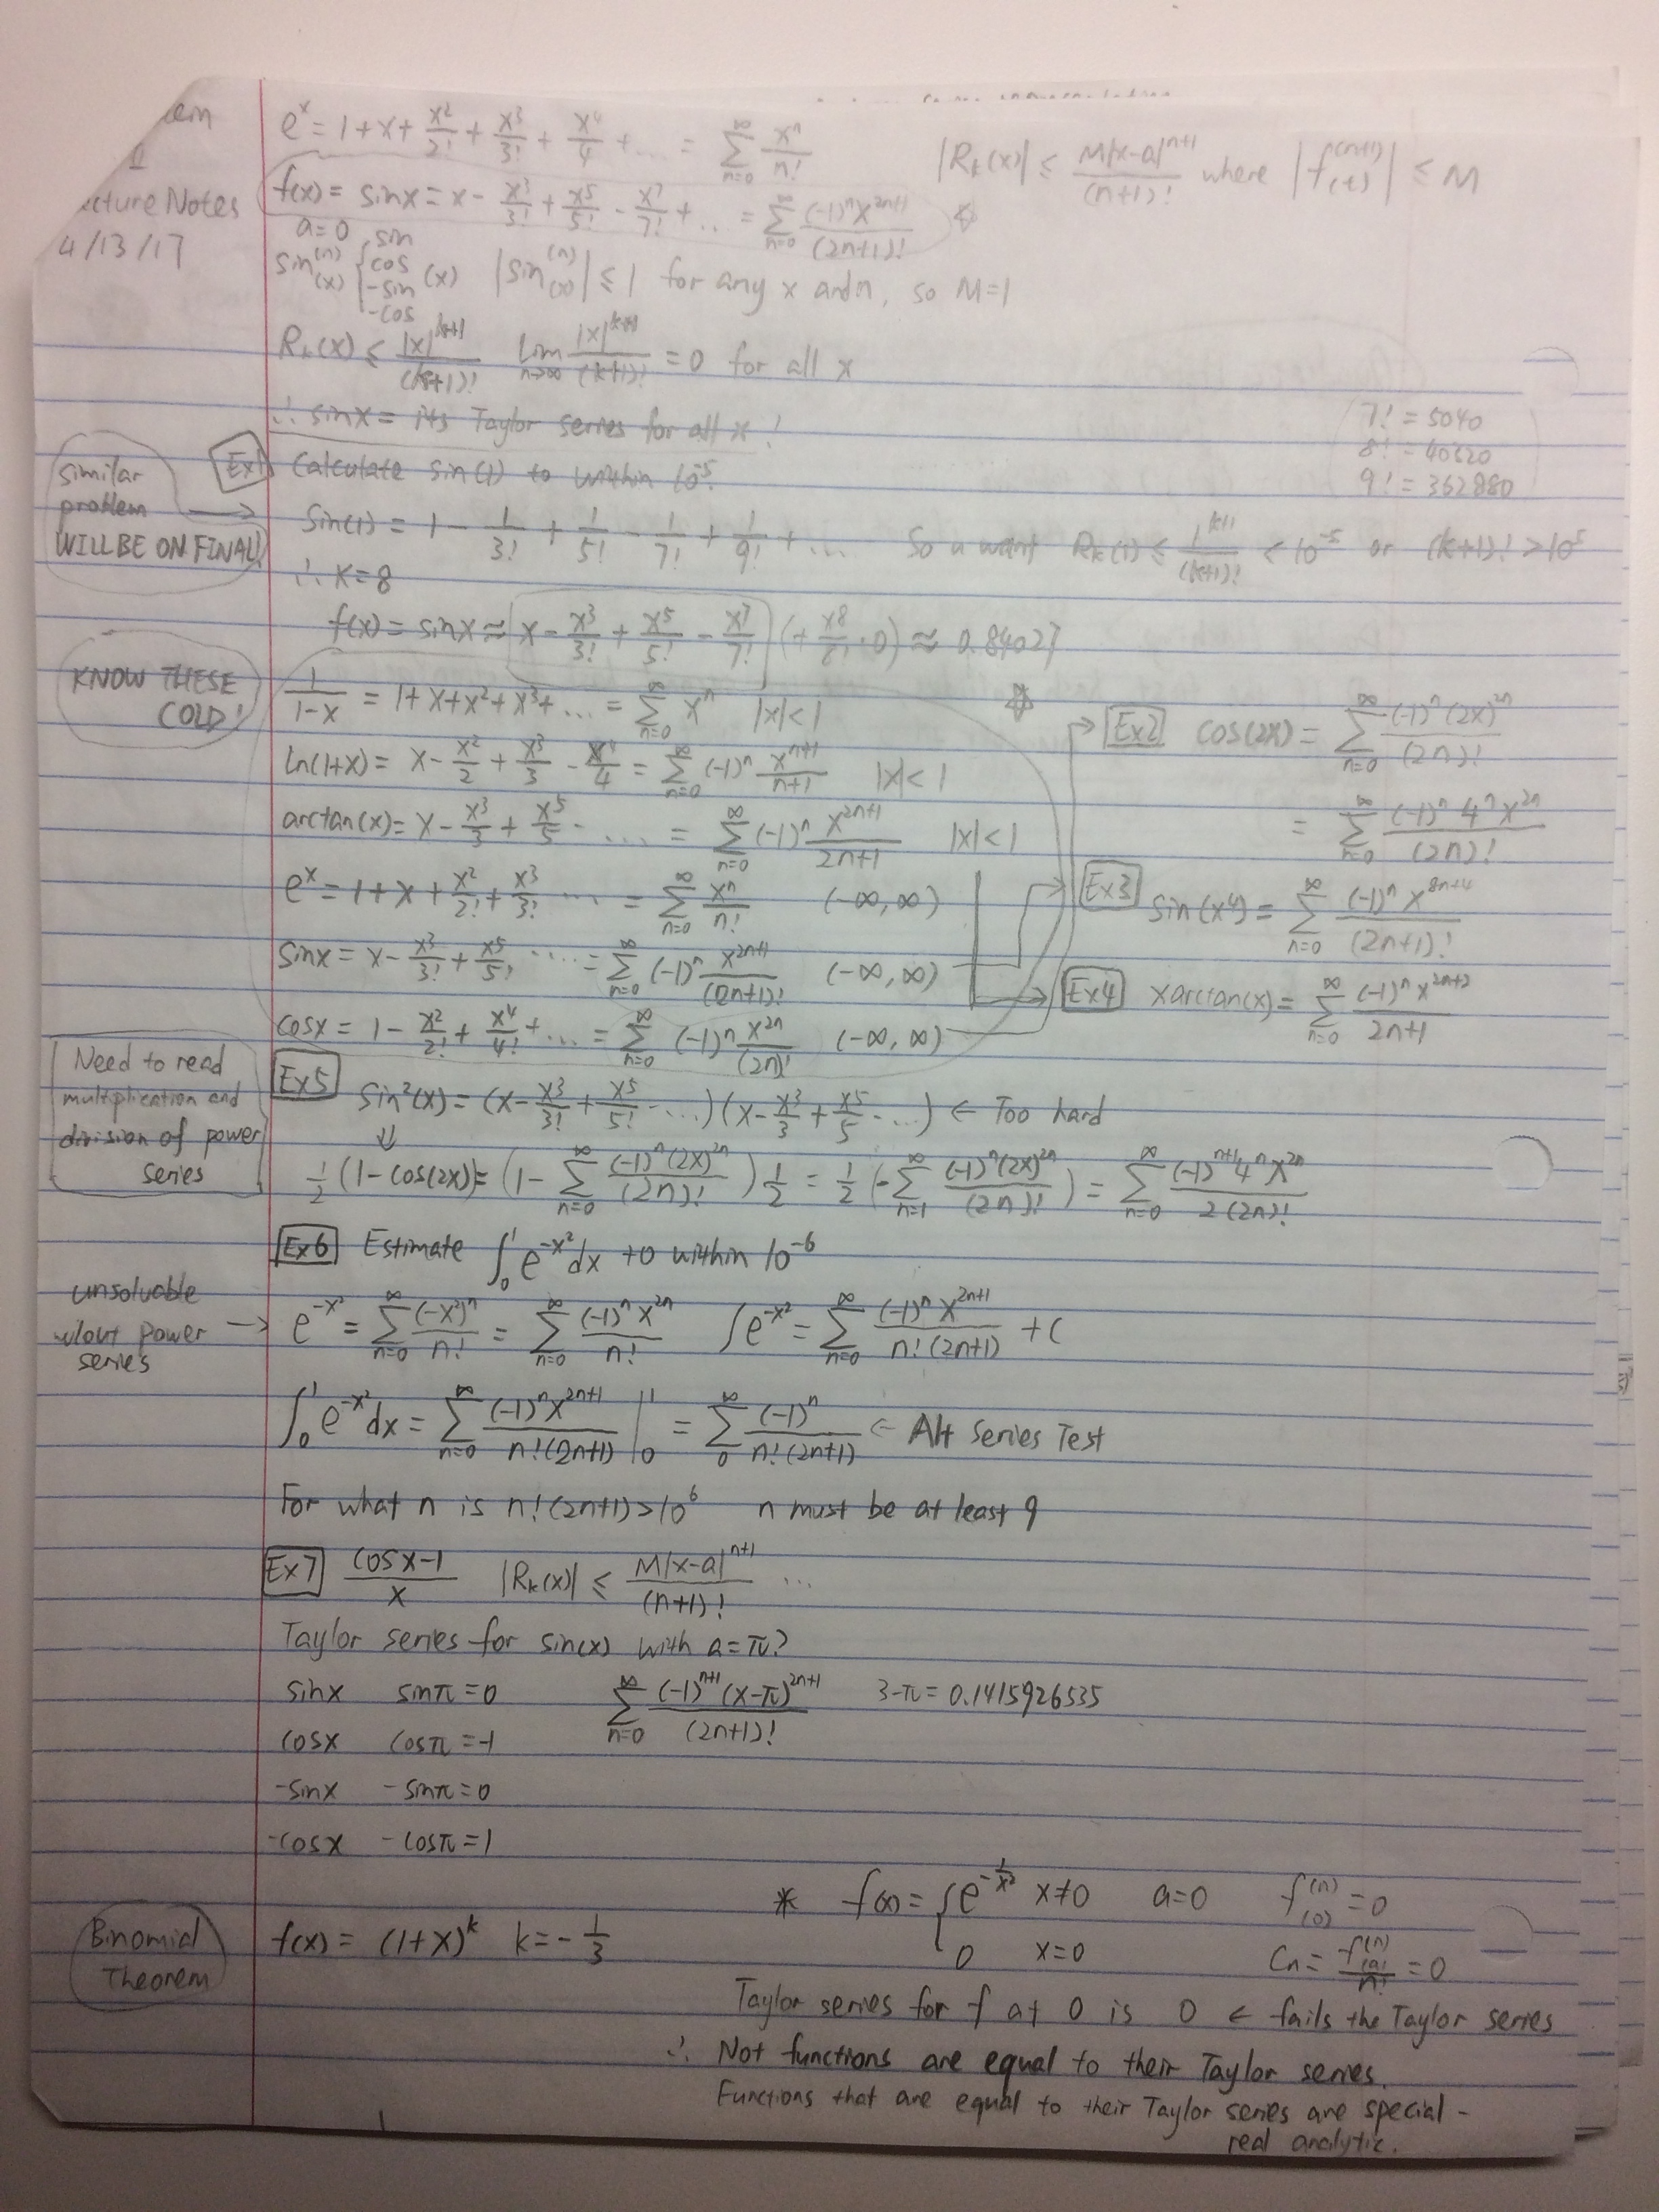 em
1
cture Notes
4/13/17
e^x = 1+x+ x²/2! + x³/3! + x⁴/4 + ... = Σ_{n=0}^∞ x^n/n!
|R_k(x)| ≤ M|x-a|^{n+1}/(n+1)! where |f^{(n+1)}(t)| ≤ M
f(x) = sinx = x - x³/3! + x⁵/5! - x⁷/7! + ... = Σ_{n=0}^∞ (-1)^n x^{2n+1}/(2n+1)! ☆
a=0
sin^{(n)}(x) { sin cos -sin -cos (x) |sin^{(n)}(x)| ≤ 1 for any x and n, so M=1
R_k(x) ≤ |x|^{k+1}/(k+1)! lim_{n→∞} |x|^{k+1}/(k+1)! = 0 for all x
∴ sinx = its Taylor series for all x!
7! = 5040
8! = 40320
9! = 362880
similar problem WILL BE ON FINAL! →
Ex1 Calculate sin(1) to within 10^{-5}.
Sin(1) = 1 - 1/3! + 1/5! - 1/7! + 1/9! + ... So u want R_k(1) ≤ 1^{k+1}/(k+1)! < 10^{-5} or (k+1)! > 10^5
∴ K=8
f(x) = sinx ≈ x - x³/3! + x⁵/5! - x⁷/7! (+ x8/8! · 0) ≈ 0.84027
KNOW THESE COLD!
1/(1-x) = 1+x+x²+x³+ ... = Σ_{n=0}^∞ x^n |x|<1 ☆
ln(1+x) = x - x²/2 + x³/3 - x⁴/4 = Σ_{n=0}^∞ (-1)^n x^{n+1}/(n+1) |x|<1
arctan(x) = x - x³/3 + x⁵/5 - ... = Σ_{n=0}^∞ (-1)^n x^{2n+1}/(2n+1) |x|<1
e^x = 1+x+ x²/2! + x³/3! ... = Σ_{n=0}^∞ x^n/n! (-∞,∞)
Sinx = x - x³/3! + x⁵/5! .... = Σ_{n=0}^∞ (-1)^n x^{2n+1}/(2n+1)! (-∞,∞)
cosx = 1 - x²/2! + x⁴/4! + ... = Σ_{n=0}^∞ (-1)^n x^{2n}/(2n)! (-∞,∞)
Ex2 cos(2x) = Σ_{n=0}^∞ (-1)^n (2x)^{2n}/(2n)!
= Σ_{n=0}^∞ (-1)^n 4^n x^{2n}/(2n)!
Ex3 sin(x⁴) = Σ_{n=0}^∞ (-1)^n x^{8n+4}/(2n+1)!
Ex4 xarctan(x) = Σ_{n=0}^∞ (-1)^n x^{2n+2}/(2n+1)
Need to read
multiplication and
division of power
series
Ex5 Sin²(x) = (x - x³/3! + x⁵/5! - ...)(x - x³/3 + x⁵/5 - ...) ← Too hard
↓
1/2 (1-cos(2x)) = (1 - Σ_{n=0}^∞ (-1)^n (2x)^{2n}/(2n)!) 1/2 = 1/2 (-Σ_{n=1}^∞ (-1)^n (2x)^{2n}/(2n)!) = Σ_{n=0}^∞ (-1)^{n+1} 4^n x^{2n}/2(2n)!
Ex6 Estimate ∫_0^1 e^{-x²}dx to within 10^{-6}
unsolvable
w/out power →
series
e^{-x²} = Σ_{n=0}^∞ (-x²)^n/n! = Σ_{n=0}^∞ (-1)^n x^{2n}/n! ∫e^{-x²} = Σ_{n=0}^∞ (-1)^n x^{2n+1}/n!(2n+1) + C
∫_0^1 e^{-x²}dx = Σ_{n=0}^∞ (-1)^n x^{2n+1}/n!(2n+1) |_0^1 = Σ_0^∞ (-1)^n/n!(2n+1) ← Alt Series Test
For what n is n!(2n+1)>10^6 n must be at least 9
Ex7 (cosx-1)/x |R_k(x)| ≤ M|x-a|^{n+1}/(n+1)! ...
Taylor series for sin(x) with a=π?
sinx sinπ=0 Σ_{n=0}^∞ (-1)^{n+1}(x-π)^{2n+1}/(2n+1)! 3-π = 0.1415926535
cosx cosπ=-1
-sinx -sinπ=0
-cosx -cosπ=1
Binomial
Theorem
f(x) = (1+x)^k k=-1/3
* f(x) = { e^{-1/x²} x≠0 a=0 f^{(n)}(0) = 0
0 x=0 Cn = f^{(n)}(a)/n! = 0
Taylor series for f at 0 is 0 ← fails the Taylor series
∴ Not functions are equal to their Taylor series.
Functions that are equal to their Taylor series are special -
real analytic.